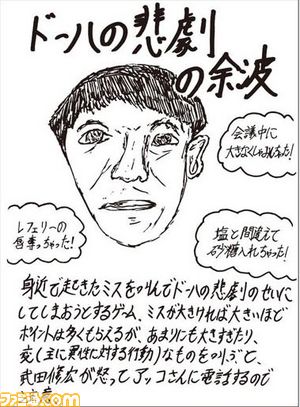 ドーハの悲劇
の余波
会議中に
大きなくしゃみしちゃった!
レフェリーの
唇奪っちゃった!
塩と間違えて
砂糖入れちゃった!
身近で起きたミスを叫んでドーハの悲劇のせいに
してしまおうとするゲーム、ミスが大きければ大きいほど
ポイントは多くもらえるが、あまりにも大きすぎたり、
変(主に異性に対する行動)なものを叫ぶと、
武田修宏が怒ってアッコさんに電話するので
ファミ通.com